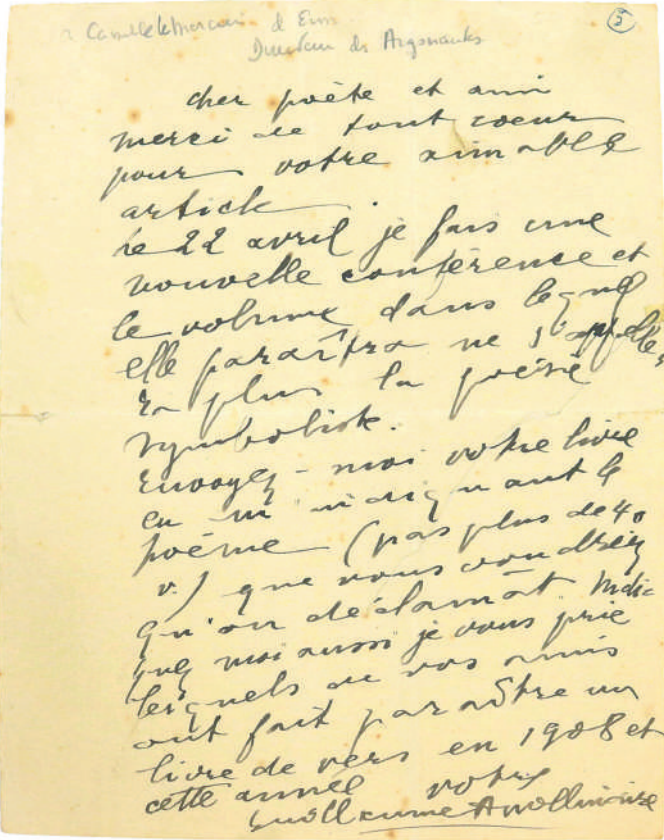 à Camille le Mercier d Erm
Directeur des Argonautes
5
cher poète et ami
merci de tout coeur
pour votre aimable
article.
Le 22 avril je fais une
nouvelle conférence et
le volume dans lequel
elle paraîtra ne s'appellera
plus la poésie
symboliste.
Envoyez-moi votre livre
en m'indiquant le
poème (pas plus de 40
v.) que vous voudriez
qu'on déclamât. Indi-
quez moi aussi je vous prie
lesquels de vos amis
ont fait paraître un
livre de vers en 1908 et
cette année votre
Guillaume Apollinaire